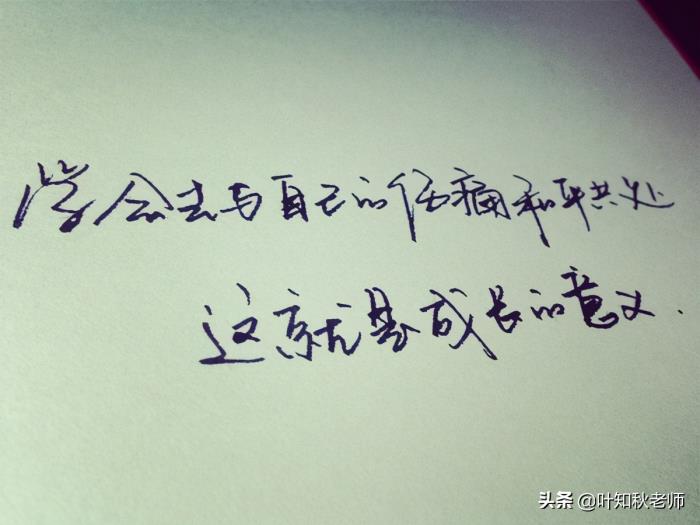 学会去与自己的伤痛和平共处
这就是成长的意义.
头条 @叶知秋老师